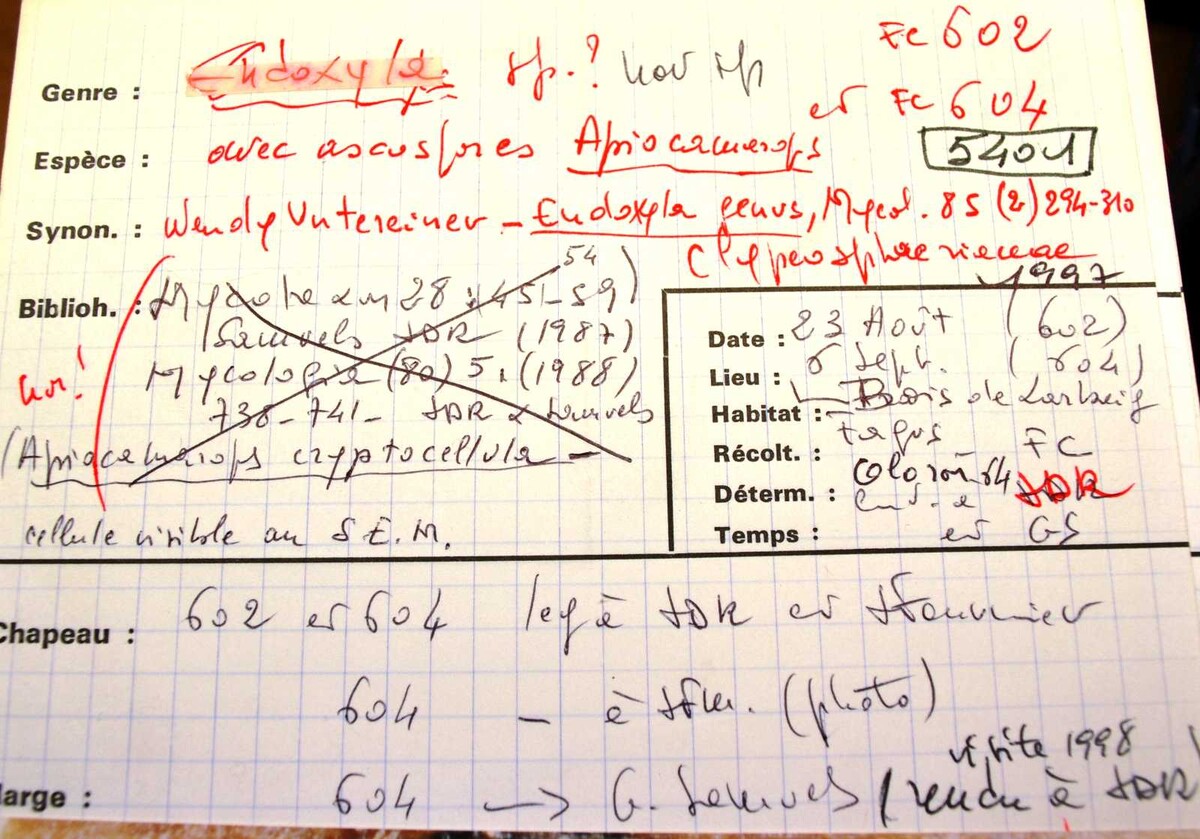 Genre : Endoxyla sp.? nov sp FC 602
et FC 604
Espèce : avec ascospores Apiocamarops 5401
Synon. : Wendy Untereiner - Endoxyla genus, Mycol. 85 (2) 294-310
Clypeosphaeriaceae
Biblioh. : Mycotaxon 28 : 451-59 54
Samuels JDR (1987)
non! Mycologia (80) 5, (1988)
738-741- JDR & Samuels
(Apiocamarops cryptocellula -
cellule visible au S.E.M.
1997
Date : 23 Août (602)
Lieu : 6 Sept. (604)
Habitat : Bois de Larbaig
Récolt. : fagus FC
Déterm. : Oloron 64 JDR
Temps : et GS
Chapeau : 602 et 604 leg à JDR et J Fournier
604 - à JFM. (photo)
visite 1998
large : 604 → G. Samuels (rendu à JDR